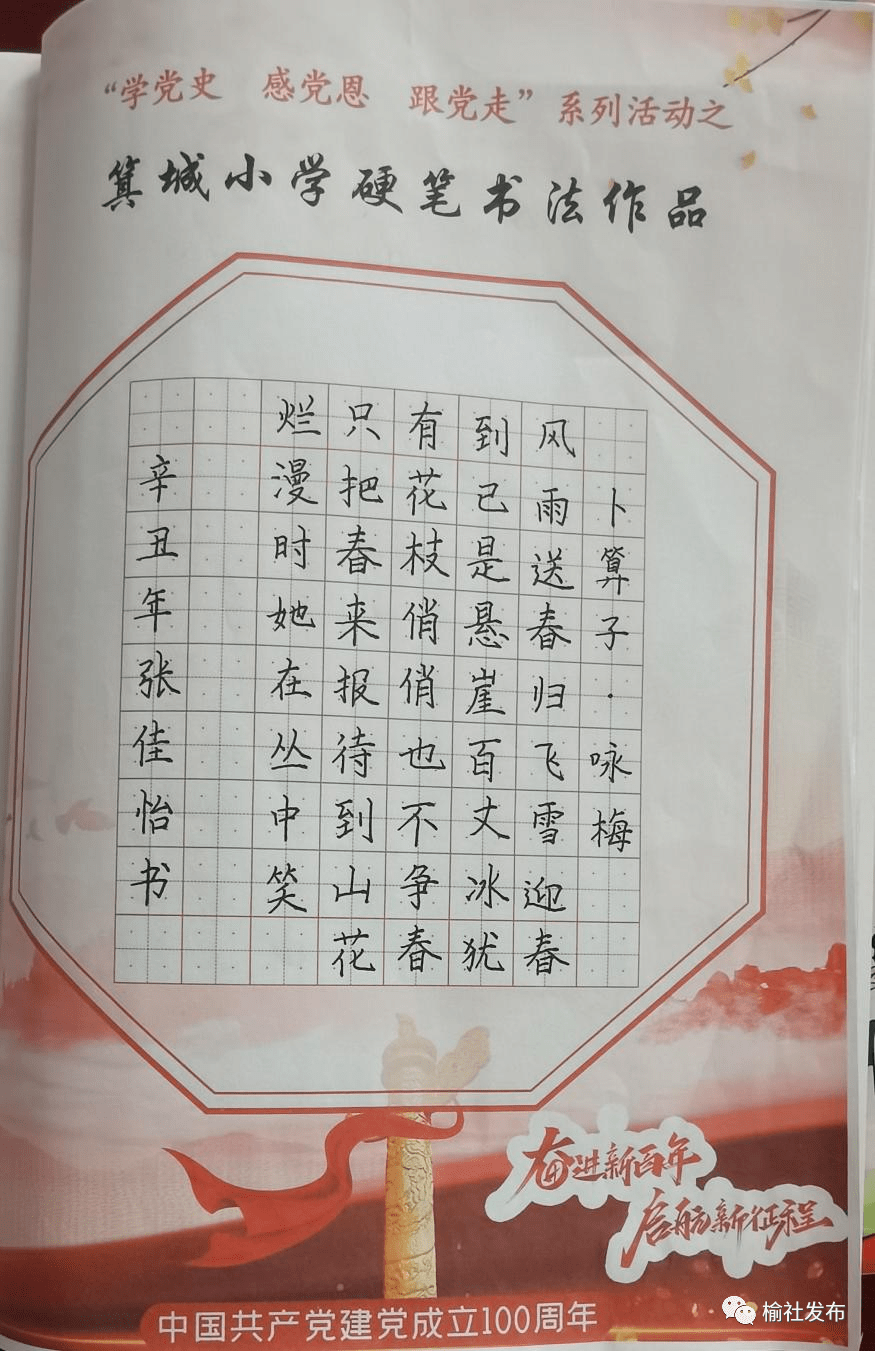 “学党史 感党恩 跟党走”系列活动之
箕城小学硬笔书法作品
卜算子·咏梅
风雨送春归飞雪迎春
到已是悬崖百丈冰犹
有花枝俏俏也不争春
只把春来报待到山花
烂漫时她在丛中笑
辛丑年张佳怡书
奋进新百年
启航新征程
中国共产党建党成立100周年
榆社发布